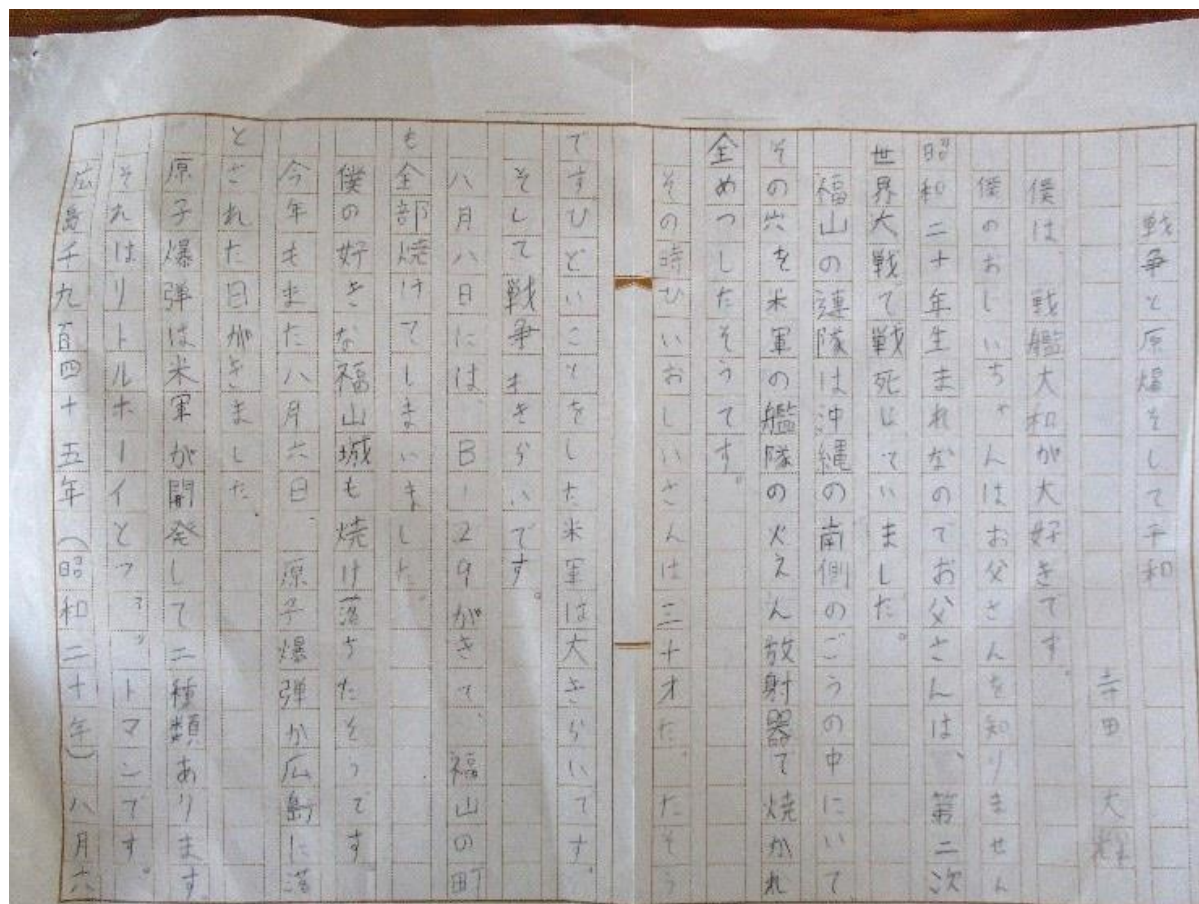 戦争と原爆そして平和
寺田 大輝
僕は、戦艦大和が大好きです。
僕のおじいちゃんはお父さんを知りません
昭和二十年生まれなのでお父さんは、第二次
世界大戦で戦死していました。
福山の連隊は沖縄の南側のごうの中にいて
その穴を米軍の艦隊の火えん放射器で焼かれ
全めつしたそうです。
その時ひいおじいさんは三十才だったそう
ですひどいことをした米軍は大きらいです。
そして戦争もきらいです。
八月八日には、B-29がきて、福山の町
も全部焼けてしまいました。
僕の好きな福山城も焼け落ちたそうです
今年もまた八月六日、原子爆弾が広島に落
とされた日がきました。
原子爆弾は米軍が開発して二種類あります
それはリトルボーイとファットマンです。
広島千九百四十五年(昭和二十年)八月六